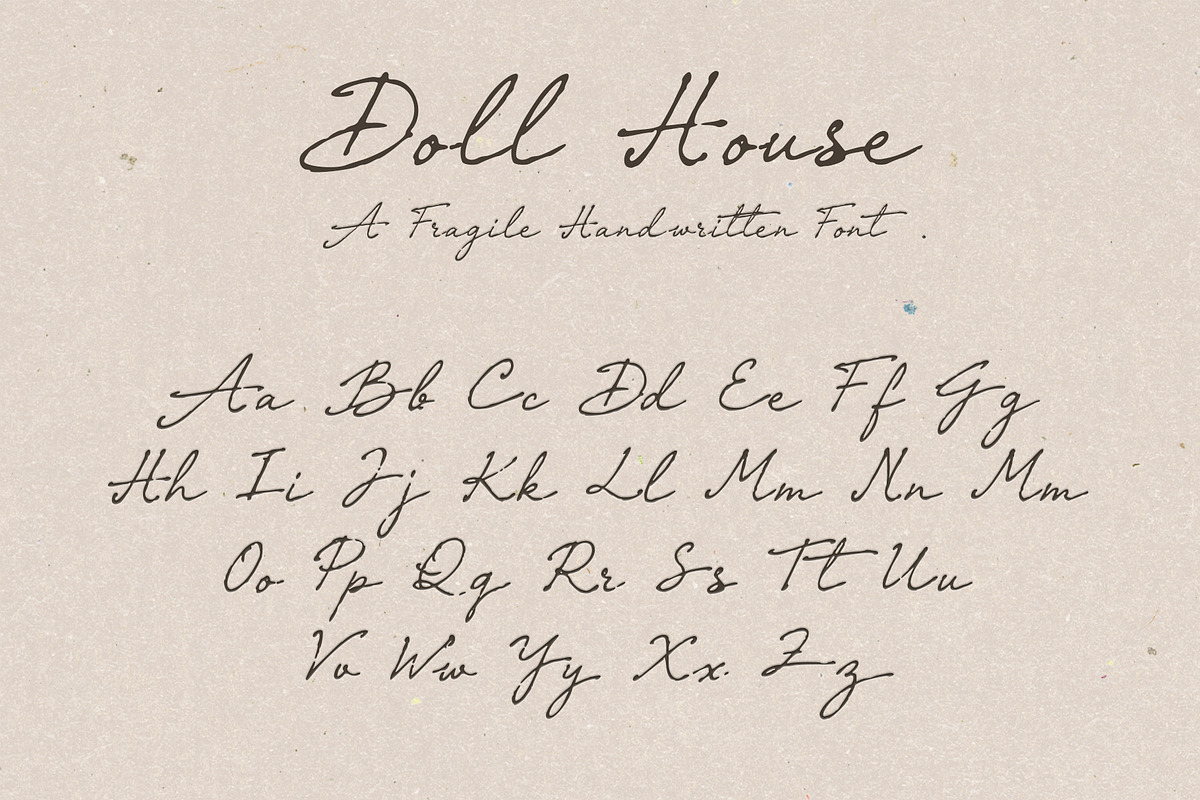 Doll House
A Fragile Handwritten Font .
Aa Bb Cc Dd Ee Ff Gg
Hh Ii Jj Kk Ll Mm Nn Mm
Oo Pp Qq Rr Ss Tt Uu
Vv Ww Yy Xx Zz